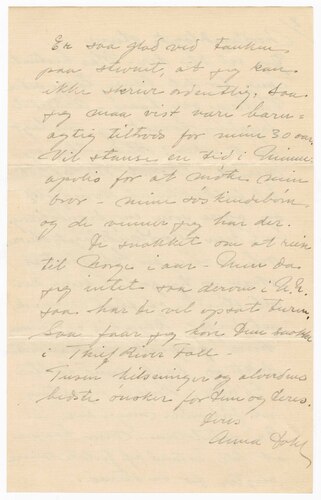 Er saa glad ved tanken
paa stevnet, at jeg kan
ikke skrive ordentlig. Saa
jeg maa vist være barn-
agtig tiltrods for mine 30 aar.
Vil stanse en tid i Minne-
apolis for at møte min
bror - mine søskendebørn
og de venner jeg har der.
Di snakket om at reise
til Norge i aar - Men da
jeg intet saa derom i
saa har de vel opsat turen.
Saa faar jeg høre Dem snakke
i Thief River Fall -
Tusen hilsninger og alverdens
bedste ønsker for Dem og Deres.
Deres
Anna Dahl